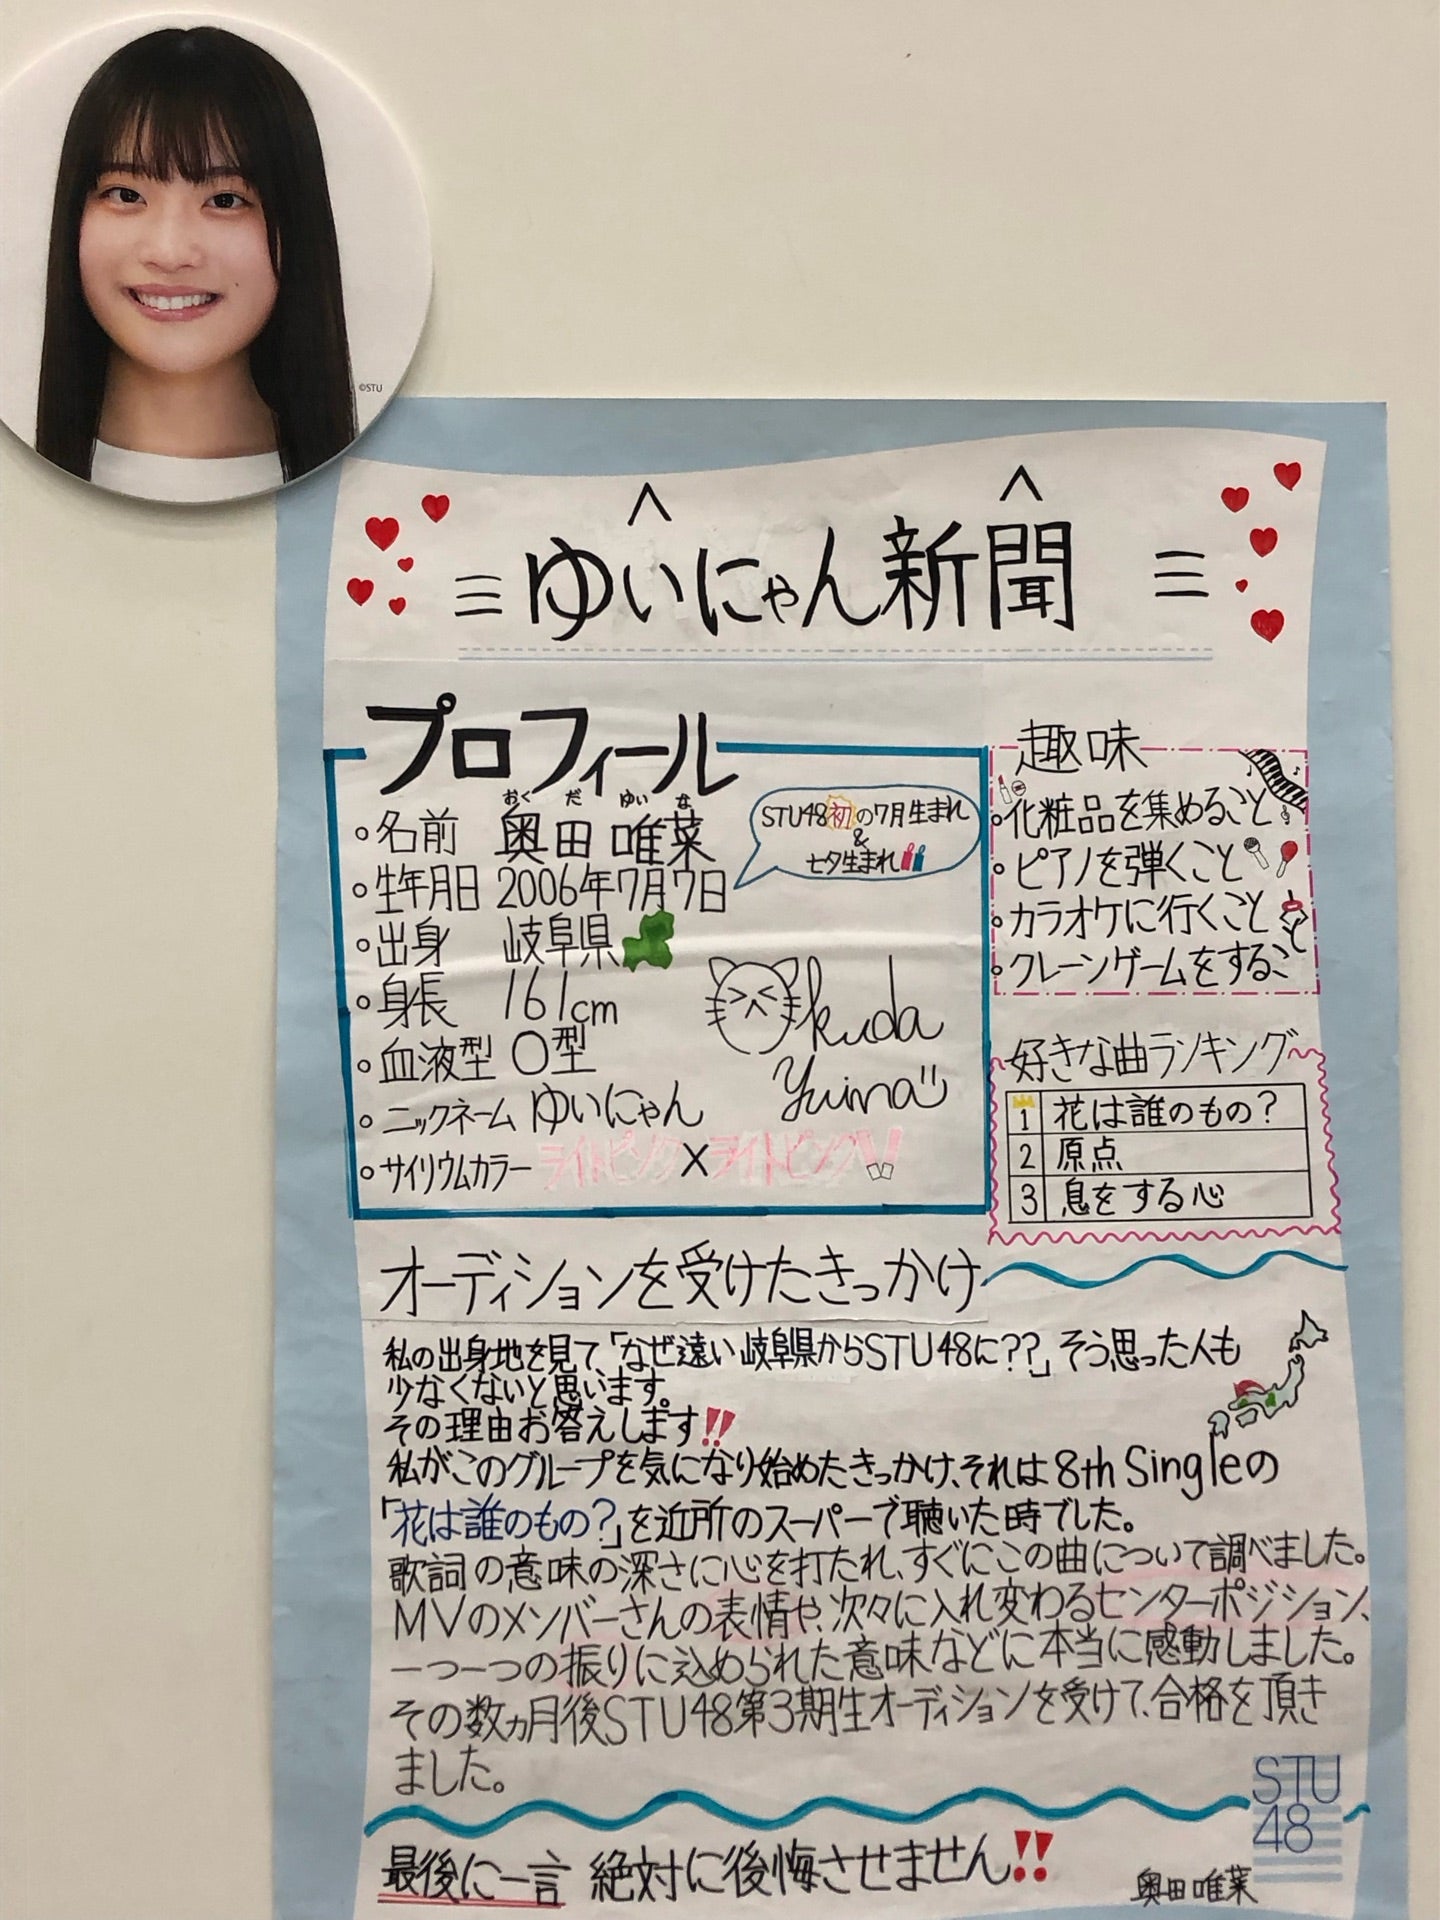 ©STU
ゆいにゃん新聞
プロフィール
おくだ ゆいな
名前 奥田 唯菜
生年月日 2006年7月7日
出身 岐阜県
身長 161cm
血液型 O型
ニックネーム ゆいにゃん
サイリウムカラー ライトピンク×ライトピンク
STU48初の7月生まれ
&
七夕生まれ
Okuda
Yuina
趣味
化粧品を集めること
ピアノを弾くこと
カラオケに行くこと
クレーンゲームをすること
好きな曲ランキング
1 花は誰のもの？
2 原点
3 息をする心
オーディションを受けたきっかけ
私の出身地を見て、「なぜ遠い岐阜県からSTU48に??」そう思った人も
少なくないと思います。
その理由お答えします!!
私がこのグループを気になり始めたきっかけ、それは8th Singleの
「花は誰のもの？」を近所のスーパーで聴いた時でした。
歌詞の意味の深さに心を打たれ、すぐにこの曲について調べました。
MVのメンバーさんの表情や、次々に入れ変わるセンターポジション、
一つ一つの振りに込められた意味などに本当に感動しました。
その数ヵ月後STU48第3期生オーディションを受けて、合格を頂き
ました。
STU
48
最後に一言 絶対に後悔させません!!
奥田唯菜